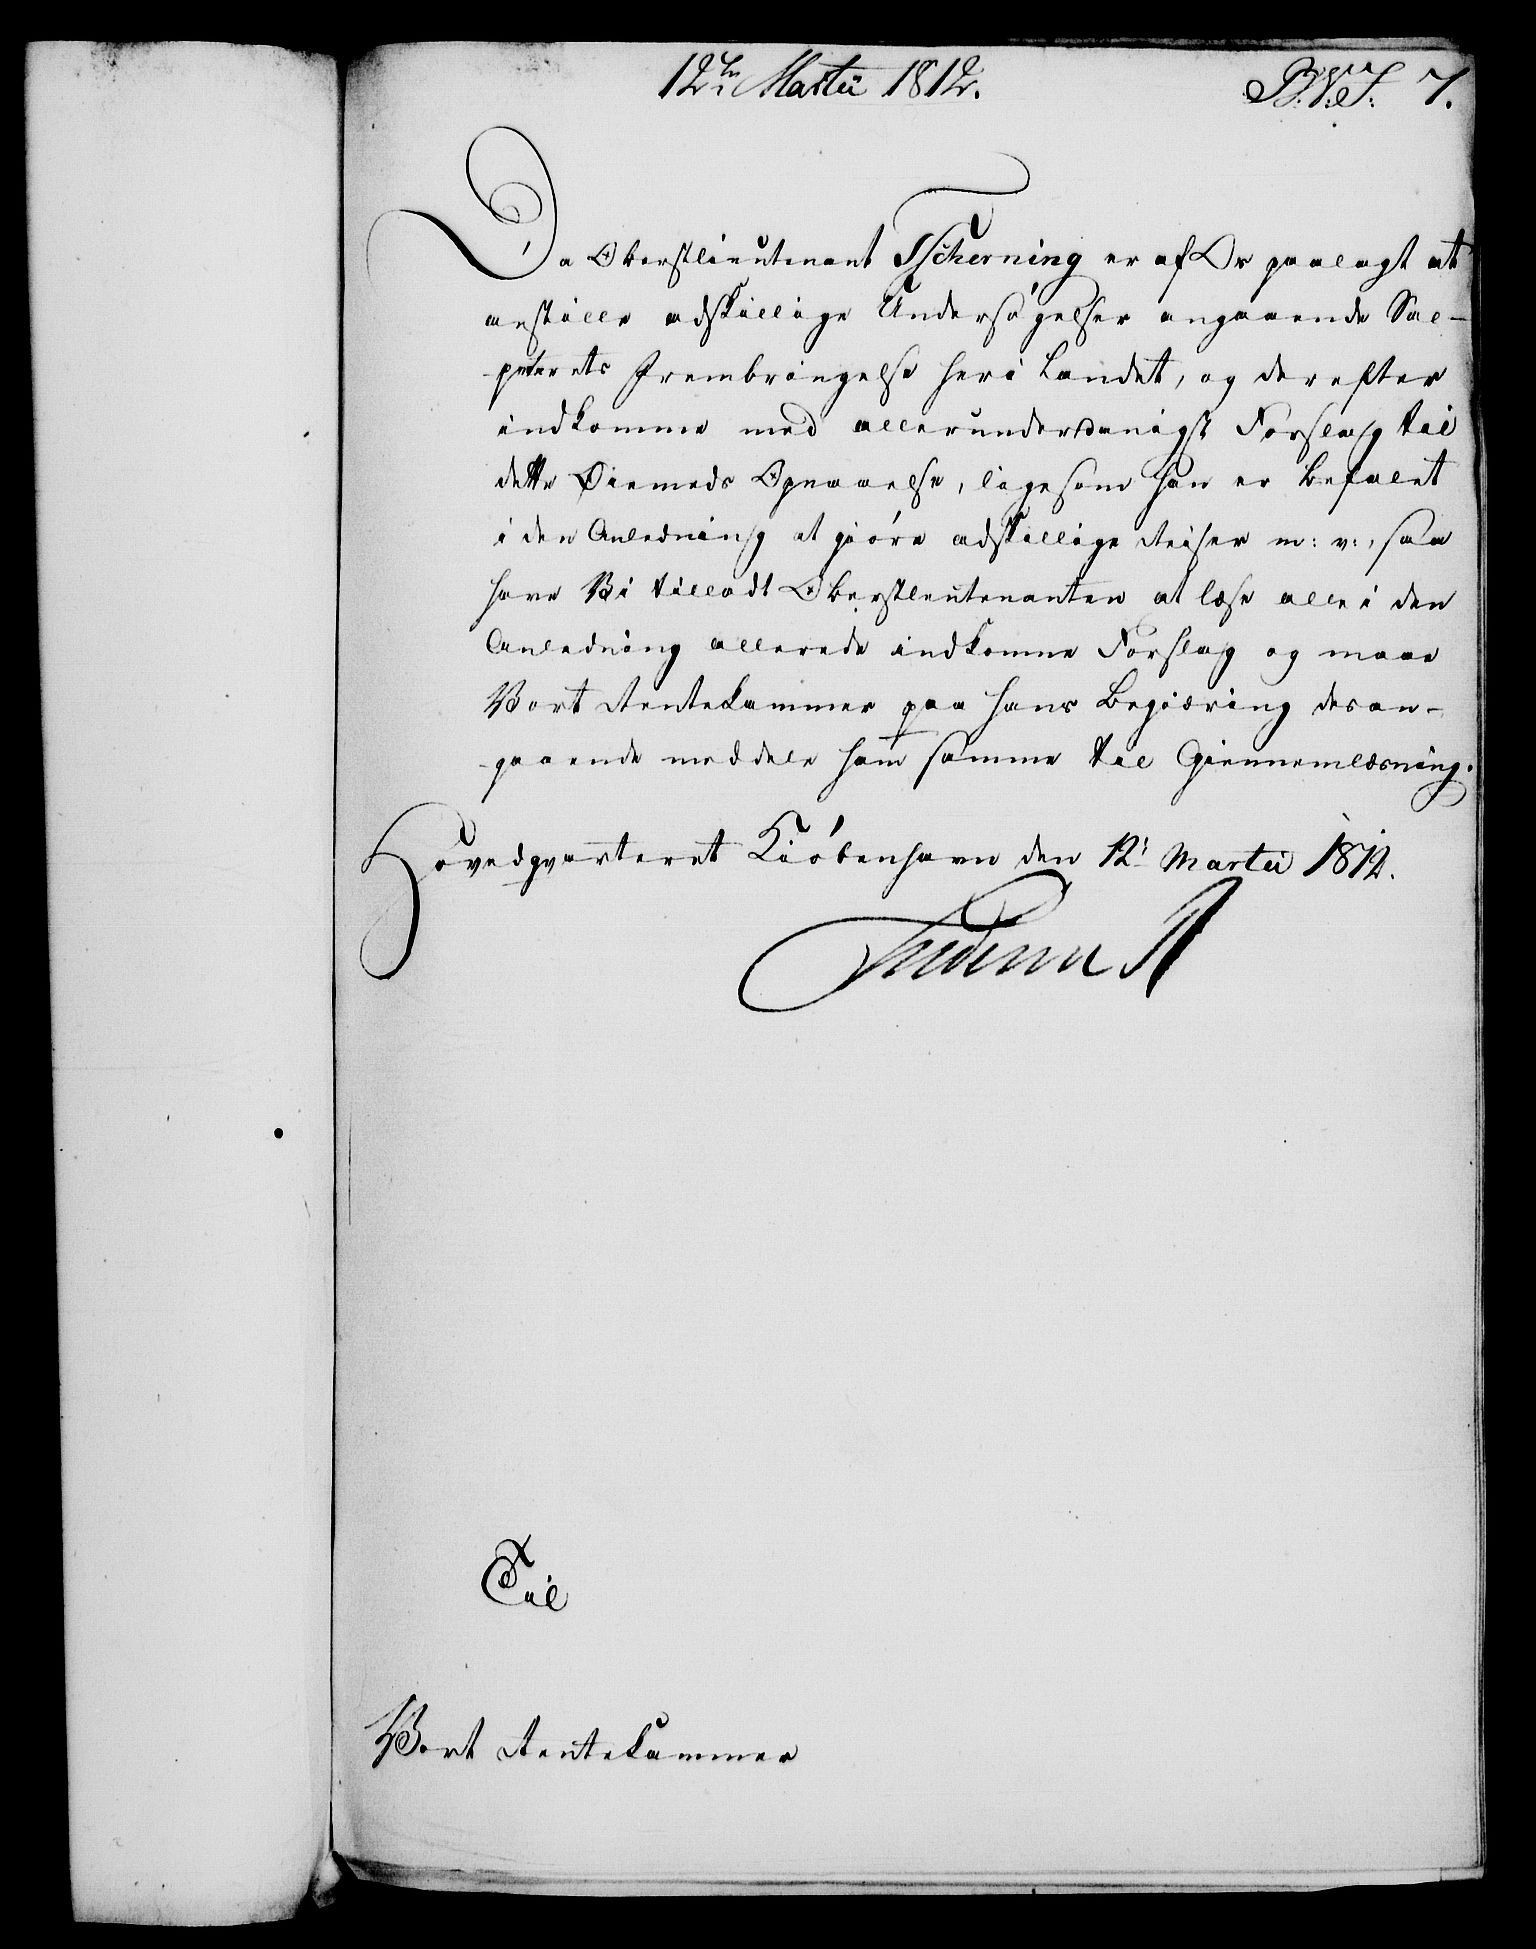 12te Martii 1812.
B.V.I. 7.
Da Oberstlieutenant Tscherning er af Os paalagt at
anstille adskillige Undersøgelser angaaende Sal-
peterets Frembringelse her i Landet, og derefter
indkomme med allerunderdanigst Forslag til
dette Øiemeds Opnaaelse, ligesom han er befalet
i den Anledning at giøre adskillige Reiser m: v:, saa
have Vi tilladt Oberstleutenanten at læse alle i den
Anledning allerede indkomne Forslag og maae
Vort Rentekammer paa hans Begiæring desan-
gaaende meddele ham samme til Giennemlæsning.
Hovedqvarteret Kiöbenhavn den 12te Martii 1812.
Frederik R
Til
Vort Rentekammer